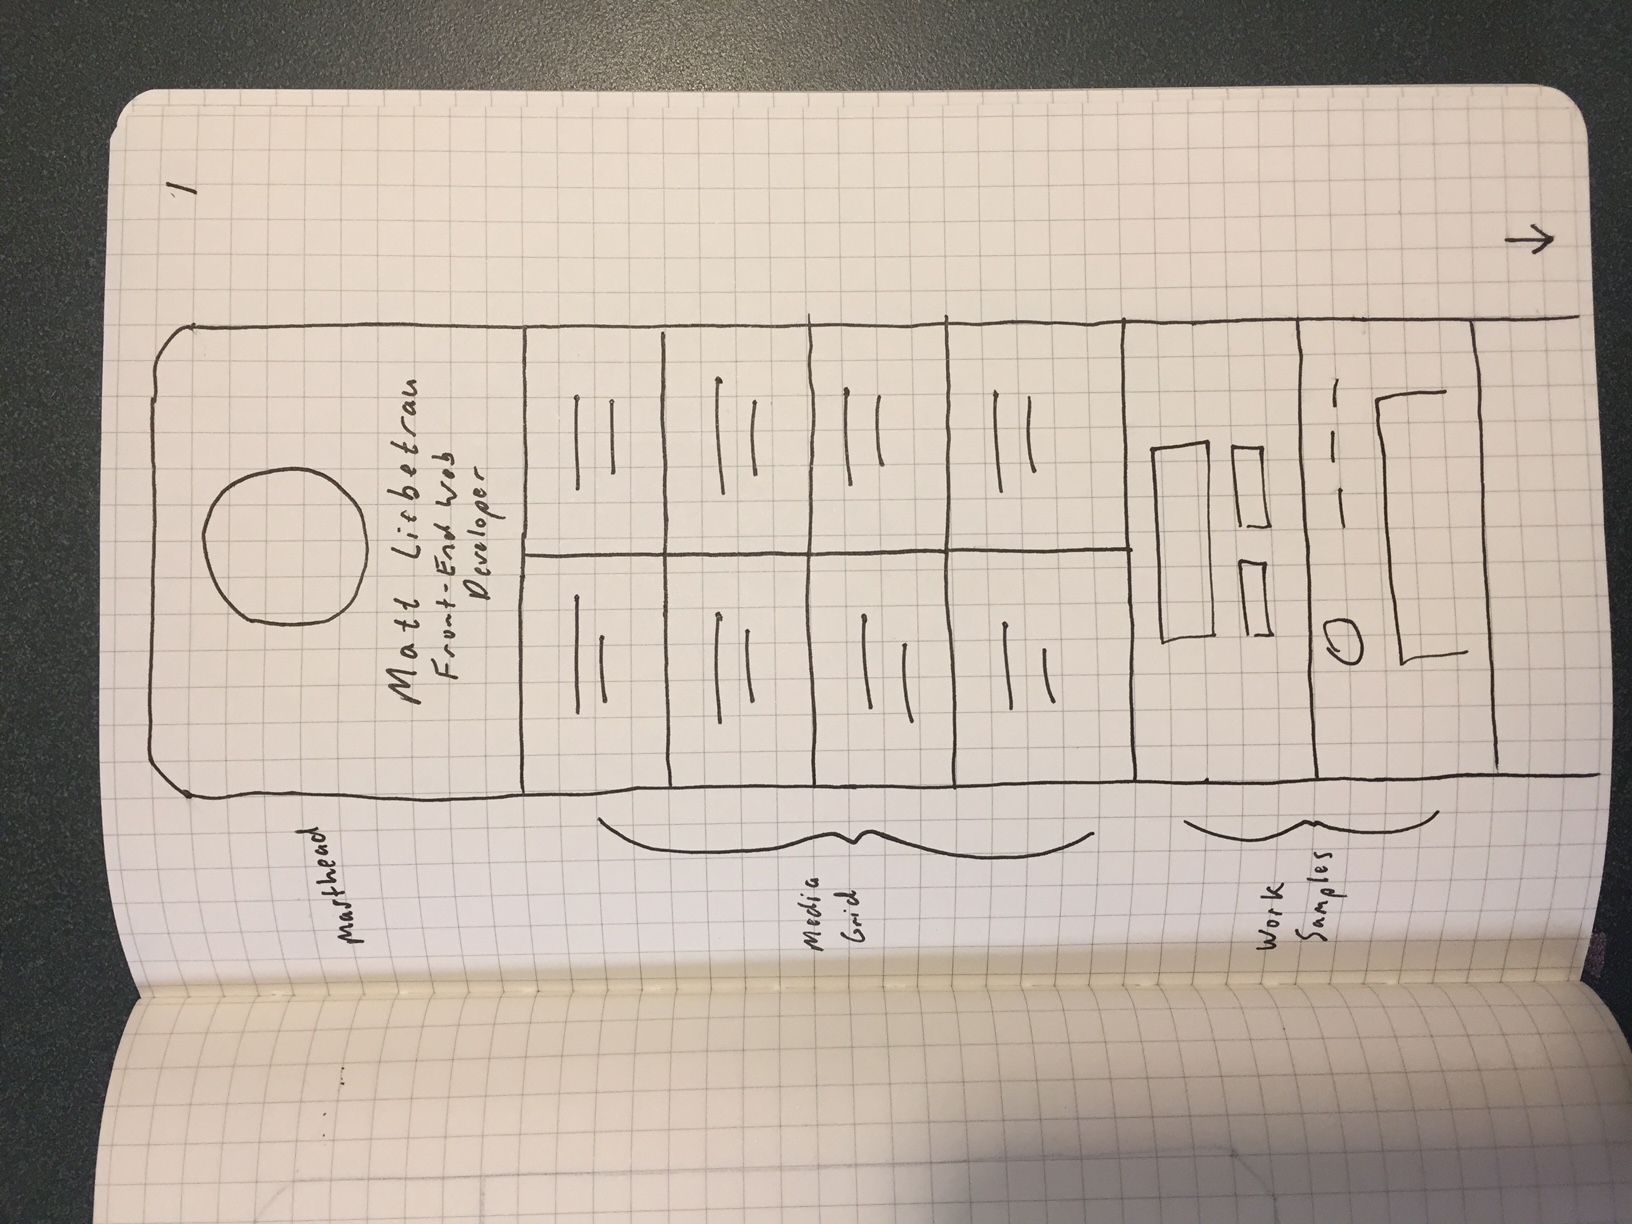 1
Masthead
Matt Liebetrau
Front-End Web
Developer
Media
Grid
Work
Samples